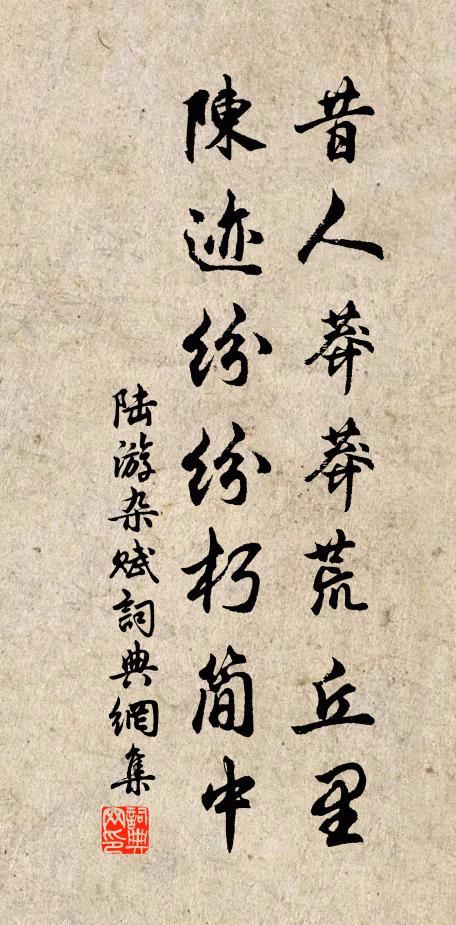 昔人莽莽荒丘里
陳迹紛紛朽簡中
陆游杂赋詞典網集
詞典网印